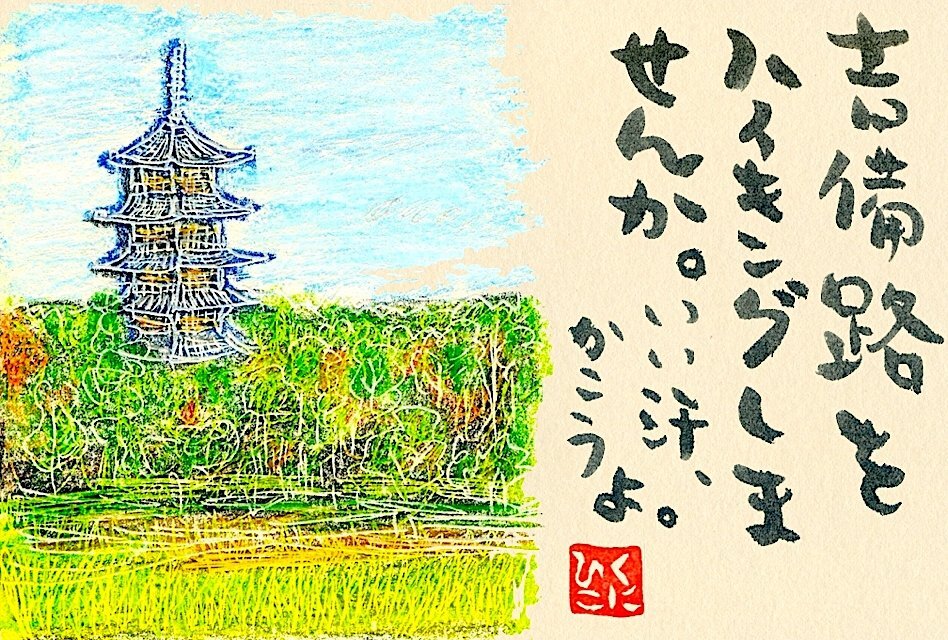 吉備路を
ハイキングしま
せんか。いい汗、
かこうよ。
くに
ひこ